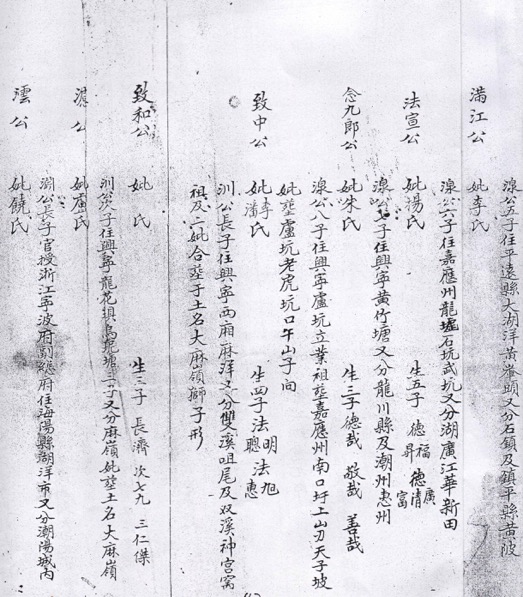 满江公
淥公五子住平遠縣大湖洋黄峯頭又分石鎮及鎮平縣黄陂
妣李氏
淥公六子住嘉應州龍墟石坑武坑又分湖廣江華新田
法宣公
妣湯氏 生五子 德福 德廣 德昇 德清 富
淥公七子住興寧黄竹塘又分龍川縣及潮州惠州
念九郎公
妣朱氏 生三子德哉 敬哉 善哉
淥公八子住興寧蘆坑立業祖塟嘉應州南口圩上山刃天子坡
妣塟蘆坑老虎坑口午山子向
致中公
妣李潘氏 生四子法明 法旭 聰 惠
渊公長子住興寧西廂麻洋又分雙溪咀尾及双溪神宫窩
祖及六妣合塟于土名大麻嶺獅子形
致和公
妣 氏 生三子 長濟 次七九 三仁傑
渊公次子住興寧龍花埧 又分麻嶺妣塟土名大麻嶺
公
妣盧氏
澍公長子官授浙江寧波府副總府住海陽縣湖洋市又分潮陽城内
澐公
妣饒氏